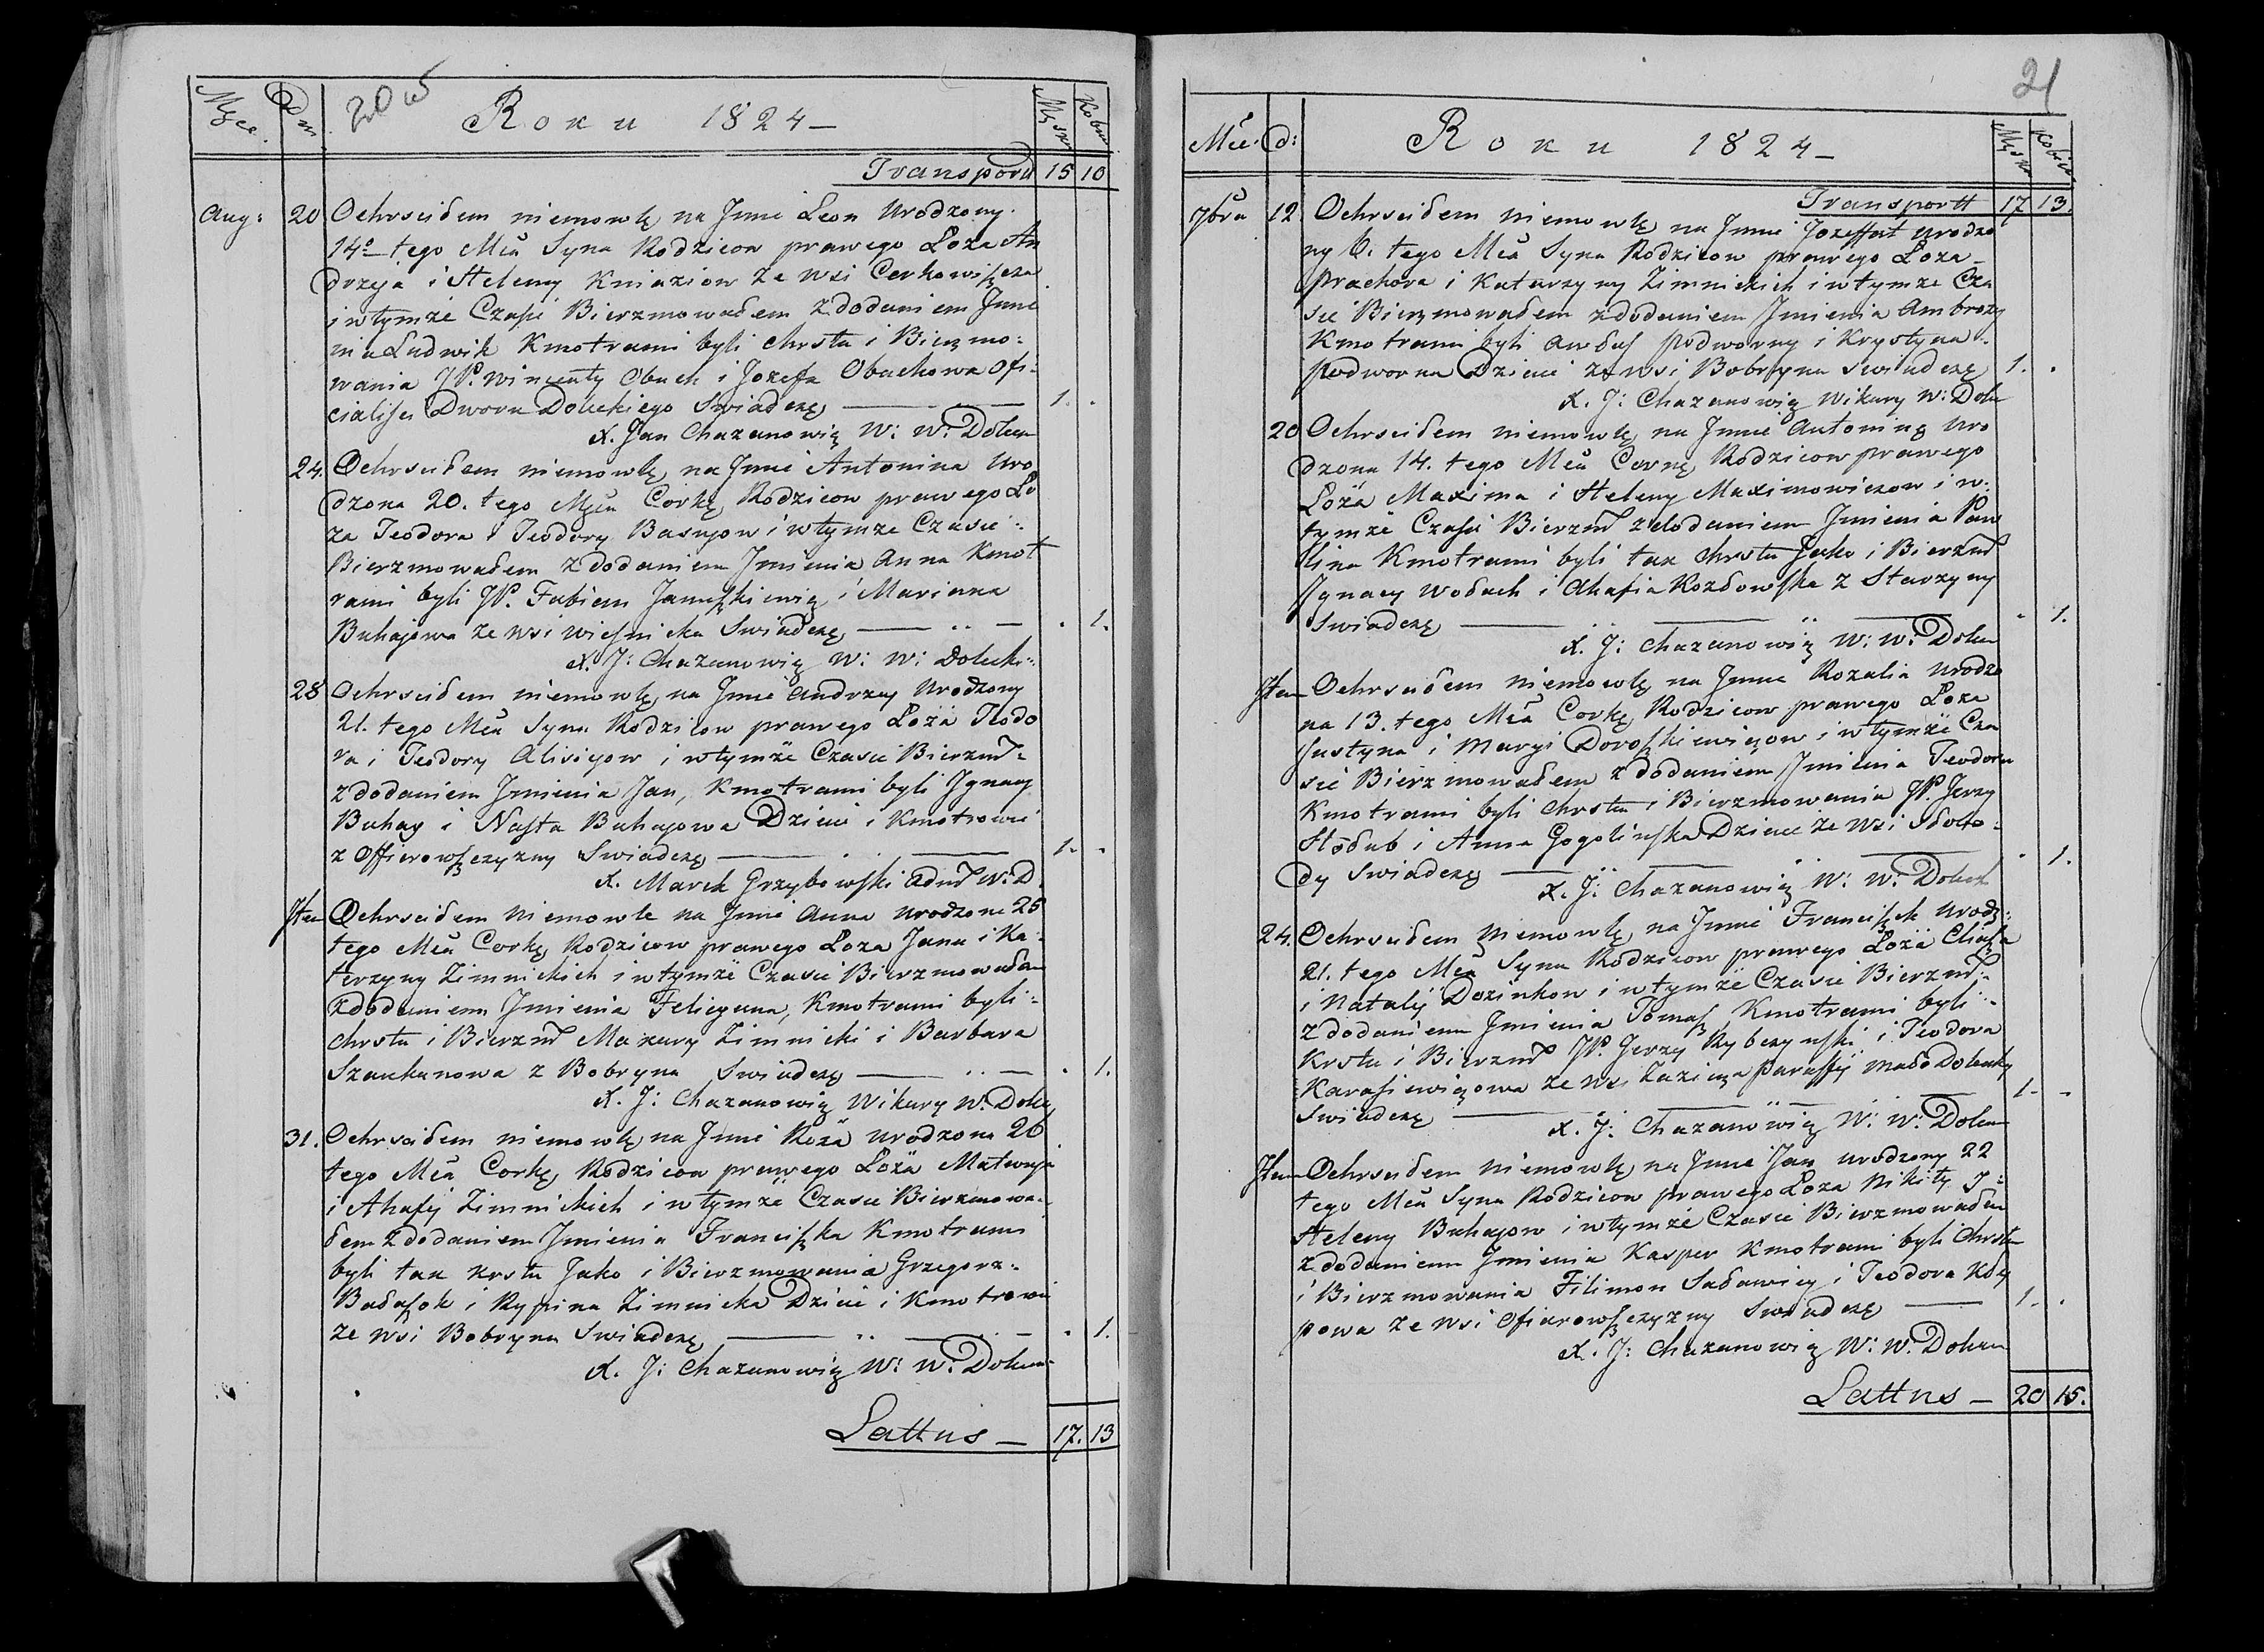 Msce. Dni. 20 Roku 1824 – Męsk Kobiet
Transport 15 10
Aug: 20 Ochrściłem niemowlę na Jmie Leon Urodzony
14º tego Mca Syna Rodzicow prawego Łoża An
drzeja i Heleny Kniaziow ze wsi Cerkowiszcza
i wtymże Czasie Bierzmowałem z dodaniem Jmie
nia Ludwik Kmotrami byli chrstu i Bierzmo:
wania JP. Wincenty Obuch i Jozefa Obuchowa Ofi:
cialiści Dworu Dołuckiego Swiadczę — 1. .
X. Jan Chazanowicz W: W: Dołucki
24. Ochrściłem niemowlę na Jmie Antonina Uro
dzona 20. tego Msca Corkę Rodzicow prawego Ło
ża Teodora i Teodory Basujow i wtymże Czasie:
Bierzmowałem z dodaniem Jmienia Anna Kmot
rami byli JP. Fabian Januszkiewicz i Marianna
Buhajowa ze wsi Wieśnicka Swiadczę — .. — . 1.
X. J: Chazanowicz W: W: Dołucki:
28 Ochrściłem niemowlę na Jmie Andrzey Urodzony
21. tego Mca Syna Rodzicow prawego Łoża Teodo
ra i Teodory Alisiejow i wtymże Czasie Bierzm:
z dodaniem Jmienia Jan, Kmotrami byli Jgnacy
Buhay i Nasta Buhajowa Dziecie i Kmotrowie
z Offierowszczyzny Swiadczę — . — 1. .
X. Marek Grzybowski Adm W: D.
Item Ochrściłem Niemowle na Jmie Anna urodzona 25
tego Mca Corkę Rodzicow prawego Łoża Jana i Ka:
terzyny Zimnickich i wtymże Czasie Bierzmowałem
z dodaniem Jmienia Felicyana, Kmotrami byli:
chrstu i Bierzm Makary Zimnicki i Barbara
Szaukanowa z Bobryna Swiadczę — .. — . 1.
X. J: Chazanowicz Wikary W: Dołuc
31. Ochrściłem niemowlę na Jmie Roża urodzona 26
tego Mca Corkę Rodzicow prawego Łoża Matwieja
i Ahafij Zimnickich i wtymże Czasie Bierzmowa.
łem z dodaniem Jmienia Franciszka Kmotrami
byli tak krstu Jako i Bierzmowania Grzegorz.
Bałaszok i Kypina Zimnicka Dziecie i Kmotrowie
ze wsi Bobryna Swiadczę — .. — . 1.
X. J: Chazanowicz W: W: Dołucki
Lattus — 17. 13
21
Mce. d: Roku 1824 – Męsk Kobiet
Transportt 17 13.
7bra 12 Ochrściłem niemowlę na Jmie Jozeffat Urodzo
ny 6. tego Mca Syna Rodzicow prawego Łoża
Prachora i Katarzyny Zimnickich i wtymże Cza
sie Bierzmowałem z dodaniem Jmienia Ambroży
Kmotrami byli Awłas podworny i Krystyna
podworna Dziecie ze wsi Bobryna Swiadczę 1. .
X. J: Chazanowicz Wikary W: Dołu
20 Ochrściłem niemowlę na Jmie Antoninę Uro
dzona 14. tego Mca Corkę Rodzicow prawego
Łoża Maxima i Heleny Maximowiczow i w.
tymże Czasie Bierzm z dodaniem Jmienia Paw
lina Kmotrami byli tak chrstu Jako i Bierzm
Jgnacy Wołach i Ahafia Kozłowska z Starzyny
Swiadczę — . 1.
X. J: Chazanowicz W: W: Dołuc
Item Ochrściłem Niemowlę na Jmie Rozalia Urodzo
na 13. tego Mca Corkę Rodzicow prawego Łoża
Justyna i Maryi Doroszkiewiczow i wtymże Cza
sie Bierzmowałem z dodaniem Jmienia Teodora
Kmotrami byli chrstu i Bierzmowania JP. Jerzy
Hołub i Anna Gogolińska Dziecie ze wsi Słobo:
dy Swiadczę — . 1.
X. J: Chazanowicz W: W: Dołuck
24. Ochrściłem Niemowlę na Jmie Franciszek Urodz:
21. tego Mca Syna Rodzicow prawego Łoża
i Natalij Dozinkow i wtymże Czasie Bierzm:
z dodaniem Jmienia Tomasz Kmotrami byli:
Krstu i Bierzm JP. Jerzy Rybczynski i Teodora
Karasiewiczowa ze wsi Zazicza Paraffij Mało Dołeckiy 1. –
Swiadczę —
X. J: Chazanowicz W: W: Dołuc
Item Ochrściłem Niemowlę na Jmie Jan urodzony 22
tego Mca Syna Rodzicow prawego Łoża Nikity J:
Heleny Buhajow i wtymże Czasie Bierzmowałem
z dodaniem Jmienia Kasper Kmotrami byli Chrstu
i Bierzmowania Filimon Saławiey i Teodora Kozy
powa ze wsi Ofiarowszczyzny Swiadczę — 1. .
X. J: Chazanowicz W: W: Dołuc
Lattus – 20 15.